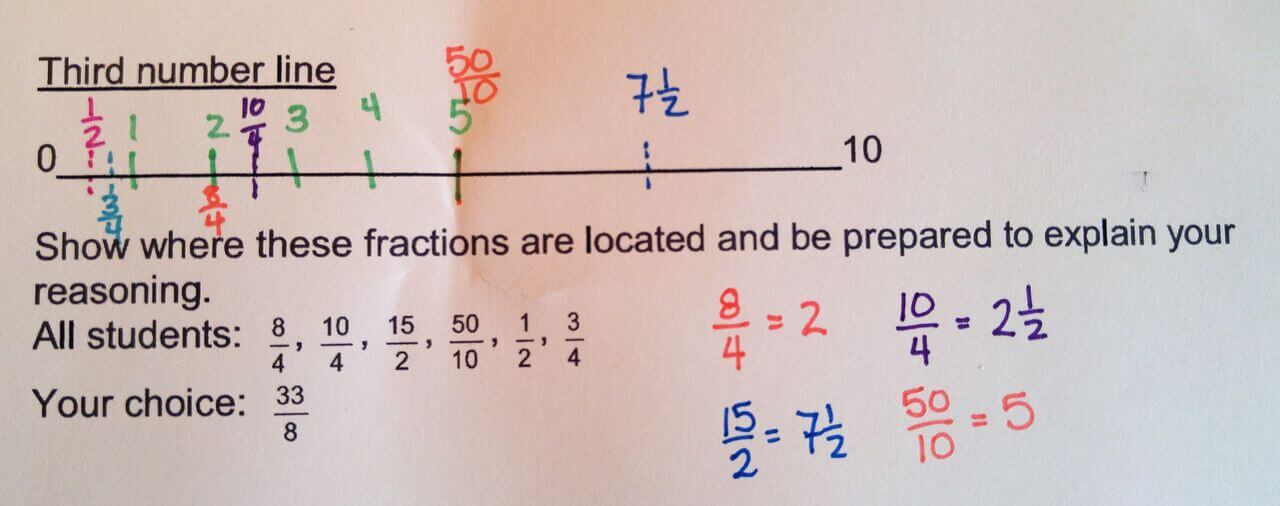 Third number line
50/10
7 1/2
1/2 1 2 10/4 3 4 5
0 10
3/4 8/4
Show where these fractions are located and be prepared to explain your
reasoning.
All students: 8/4, 10/4, 15/2, 50/10, 1/2, 3/4
Your choice: 33/8
8/4 = 2 10/4 = 2 1/2
15/2 = 7 1/2 50/10 = 5